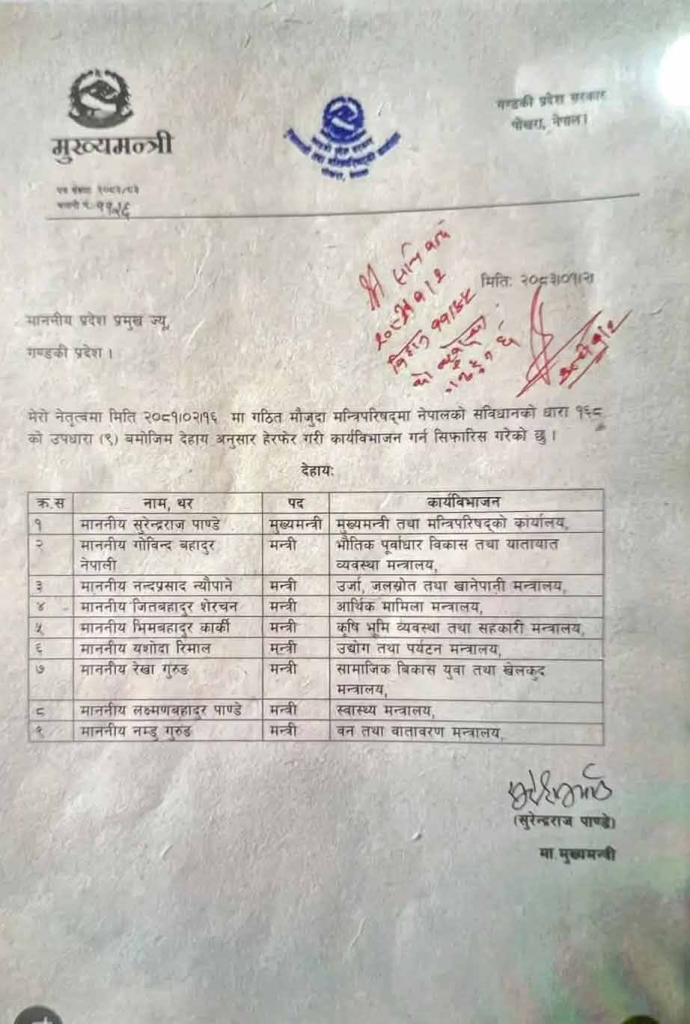 मुख्यमन्त्री
गण्डकी प्रदेश सरकार
पोखरा, नेपाल।
पत्र संख्या २०८२/८३
चलानी नं.
मिति: २०८३/०१/२१
माननीय प्रदेश प्रमुख ज्यू,
गण्डकी प्रदेश ।
मेरो नेतृत्वमा मिति २०८१/०२/१६ मा गठित मौजुदा मन्त्रिपरिषद्‌मा नेपालको संविधानको धारा १६८
को उपधारा (९) बमोजिम देहाय अनुसार हेरफेर गरी कार्यविभाजन गर्न सिफारिस गरेको छु ।
देहायः
क्र.स नाम, थर पद कार्यविभाजन
१ माननीय सुरेन्द्रराज पाण्डे मुख्यमन्त्री मुख्यमन्त्री तथा मन्त्रिपरिषद्‌को कार्यालय,
२ माननीय गोविन्द बहादुर मन्त्री भौतिक पूर्वाधार विकास तथा यातायात
नेपाली व्यवस्था मन्त्रालय,
३ माननीय नन्दप्रसाद न्यौपाने मन्त्री उर्जा, जलस्रोत तथा खानेपानी मन्त्रालय,
४ माननीय जितबहादुर शेरचन मन्त्री आर्थिक मामिला मन्त्रालय,
५ माननीय भिमबहादुर कार्की मन्त्री कृषि भूमि व्यवस्था तथा सहकारी मन्त्रालय,
६ माननीय यशोदा रिमाल मन्त्री उद्योग तथा पर्यटन मन्त्रालय,
७ माननीय रेखा गुरुङ मन्त्री सामाजिक विकास युवा तथा खेलकुद
मन्त्रालय,
८ माननीय लक्ष्मणबहादुर पाण्डे मन्त्री स्वास्थ्य मन्त्रालय,
९ माननीय नम्डु गुरुङ मन्त्री वन तथा वातावरण मन्त्रालय,
(सुरेन्द्रराज पाण्डे)
मा.मुख्यमन्त्री